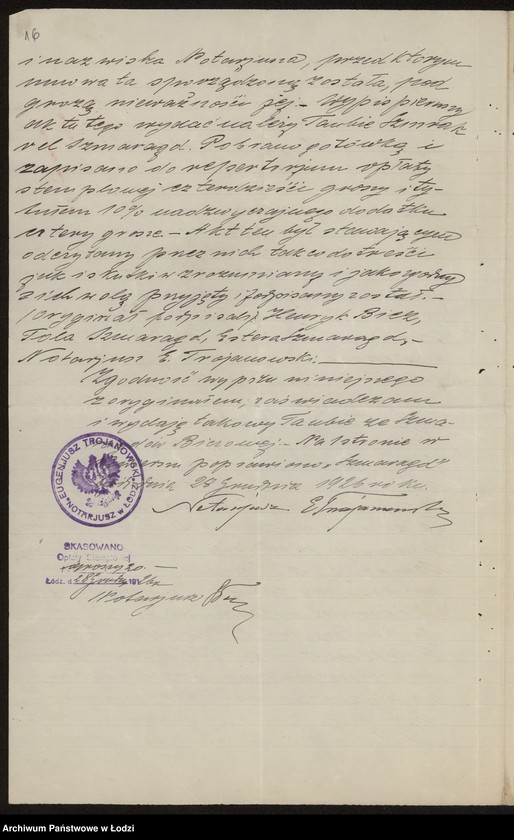 16
i nazwiska Notarjusza, przed którym
umowa ta sporządzoną została, pod
grozą nieważności jej.- Wypis pierwszy
aktu tego wydać należy Taubie Szmrak
vel Szmaragd. Pobrano gotówką i
zapisano do repertorjum opłaty
stemplowej czterdzieści groszy i ty-
tułem 10% nadzwyczajnego dodatku
cztery grosze.- Akt ten był stawającym
odczytany, przez nich tak co do treści
jak i skutków zrozumiany i jako zgodny
z ich wolą przyjęty i podpisany został.-
/oryginał podpisali/ Henryk Birk,
Tola Szmaragd, Estera Szmaragd,-
Notarjusz E. Trojanowski.
Zgodność wypisu niniejszego
z oryginałem, zaświadczam
i wydaję takowy Taubie ze Szma-
Na stronie w
poprawiono "Szmaragd"
dnia 27 Grudnia 1926 roku.
Notarjusz E Trojanowski
EUGENJUSZ TROJANOWSKI
NOTARJUSZ w ŁODZI
SKASOWANO
Opłaty Stemplowej
groszy 20.-
Łódź, d. 191
Notarjusz
Archiwum Państwowe w Łodzi